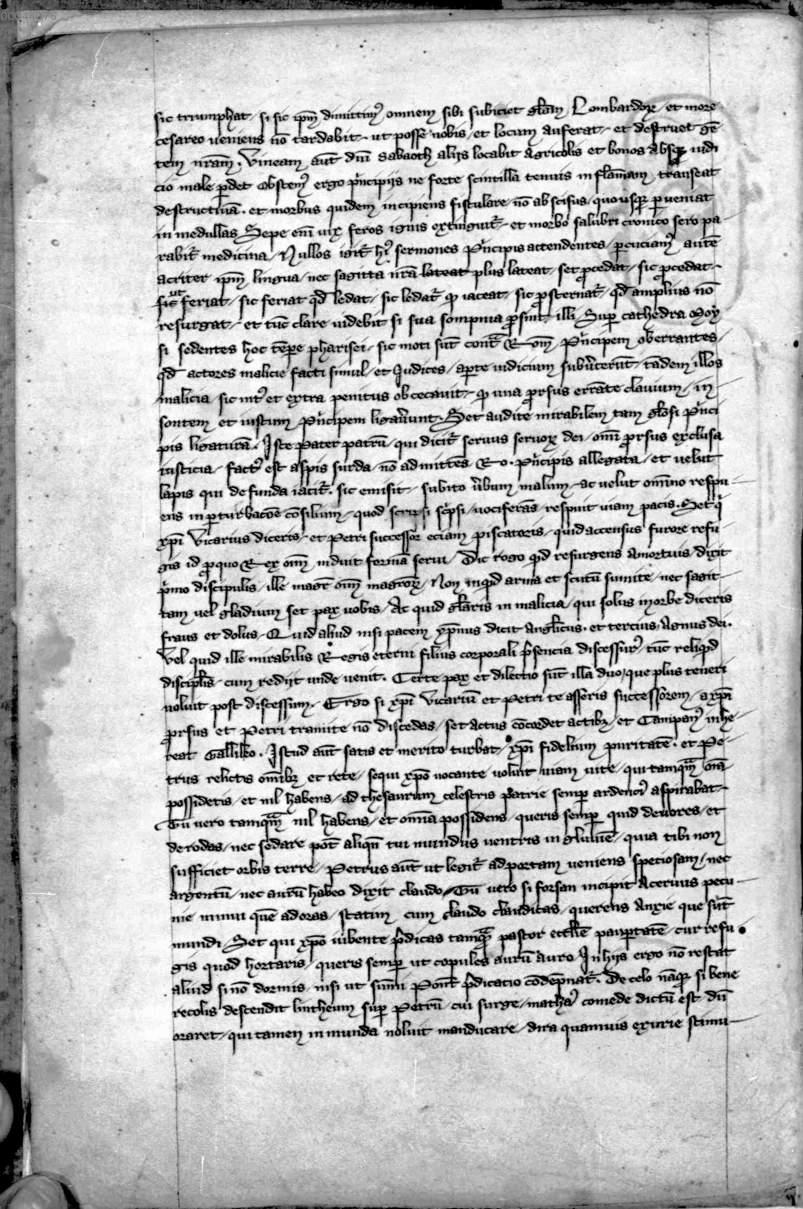 sic triumphat / si sic ip̄m dimittim᷒ omnem sibi subiciet gl̄am / Lombardoꝝ / et more
cesareo ueniens nō tardabit / ut posse nobis / et locum auferat / et destruet gē
tem nr̄am. Vineam aut̄ dn̄i sabaoth alijs locabit Agricolis et bonos Absqꝫ iudi
cio male ꝑdet Obstem᷒ ergo pͥncipijs ne forte scintilla tenuis in flam̄am transeat
destructiuā. et morbus quidem incipiens fistulare nō abscisus / quousqꝫ ꝑueniat
in medullas Sepe eni᷒ uix feros ignis extinguit᷑ / et morbo salubri cronico sero pa
rabit᷑ medicina / Nullos igit᷑ hi᷒ sermones Pͥncipis attendentes / ꝑcuciam᷒ autē
acriter ip̄m lingua / nec sagitta nr̄a lateat plus lateat / set ꝓcedat / sic ꝓcedat
sic ut feriat / sic feriat qd̄ ledat / sic ledat᷑ qͥ iaceat / sic ꝓsternat᷑ / qd̄ amplius nō
resurgat / et tūc clare uidebit si sua sompnia ꝓsint illi Suꝑ cathedra Moy
si sedentes hoc tēꝑe pharisei / sic moti sūt cont᷑ Rom᷒ / Pͥncipem oberrantes /
qd̄ actores malicie facti simul / et Iudices / aꝑte iudicium subuͥterūt / tādem illos
malicia / sic int᷒ et extra penitus obcecauit / qͥ una ꝓrsus errāte clauium / in
sontem et iustum Pͥncipem ligauͥunt. Set audite mirabilem tam gl̄osi Pͥnci
pis ligaturā. Iste Pater patrū / qui dicit᷑ seruus seruoꝝ dei / omī ꝓrsus exclusa
iusticia / fact᷒ est aspis surda / nō admittēs Ro. Pͥncipis allegata / et uelut
lapis qui de funda iacit᷑. sic emisit / subito uͥbum malum / ac uelut om̄ino respu
ens inꝑturbacōe cōsilium / quod scripsi sc̄psi / uociferās respuit uiam pacis. Set qͥ
xp̄i Vicarius diceris / et Petri successor eciam piscatoris / quid accensus furore refu
gis id ꝓ quo Rex om̄i induit formā serui / Dic rogo qd̄ resurgens Amortuis / dixit
pͥmo discipulis / ille magr̄ om̄i magroꝝ / Non inqd̄ arma et scutū sumite / nec sagit
tam uel gladium set pax uobis / At quid gl̄aris in malicia / qui solus in orbe diceris
fraus et dolus / Quid aliud nisi pacem xp̄mus dicit Angl̄icus. et tercius Agnus dei.
Vel quid ille mirabilis Regis eterni filius corporali pͥsencia discessur᷒ tūc reliqd̄
discipl̄is / cum redijt unde uenit. Certe pax et dilectio sūt illa duo / que plus teneri
uoluit post discessum. Ergo si xp̄i Vicarium et Petri te asseris successorem / a xp̄i
ꝓrsus et Petri tramite nō discedas / set actus cōcordet actibꝫ / et Campan᷒ inhe
reat Galileo. Istud aut̄ satis et merito turbat / xp̄i fidelium puritatē. et Pe
trus relictis om̄ibꝫ et rete / sequi xp̄o uocante uoluit uiam uite / qui tamqm̄ om̄ia
possidetis / et nil habens / ad thesaurum celestis patrie semꝑ ardenci᷒ aspirabat
Tu uero tamqm̄ nil habens / et omnia possidens / queris semꝑ quid deuores / et
de rodas / nec sedare pōt aliqn̄ tui mundius uentris ingluuiē / quia tibi non
sufficiet orbis terre / Petrus aut̄ ut legit᷑ ad portam ueniens speciosam / nec
argentū / nec aurū habeo dixit claudo / Tu uero si forsan incipit Aceruus pecu
nie minui quē adoras / statim cum claudo claudicas / querens Anxie que sūt
mundi Set qui xp̄o iubente pͥdicas tamqm̄ pastor ecclīe pauꝑtatē / cur refu
gis quod hortaris / queris semꝑ ut copules aurū Auro In hijs ergo nō restat
aliud si nō dormis / nisi ut sum̄i Pont᷑ pͥdicatio cōdempnat᷑. De celo nāqꝫ si bene
recolis descendit lintheum suꝑ Petrū / cui surge / matha᷒ comede dictū est dū
oraret / qui tamen inmunda noluit manducare / dira quamuis exurie stimu